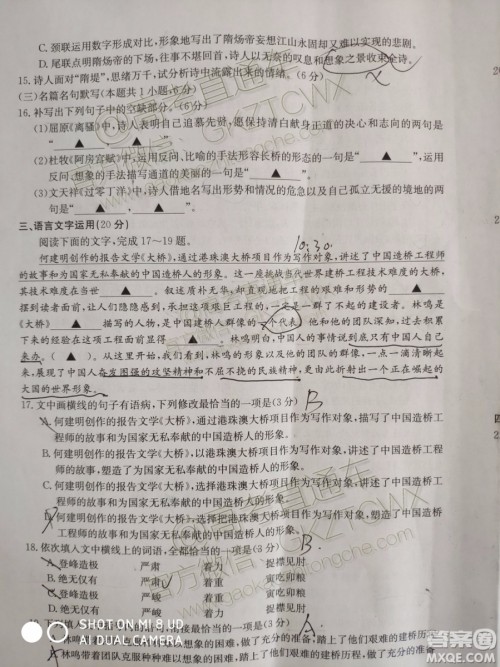 C. 颈联运用数字形成对比，形象地写出了隋炀帝妄想江山永固却又难以实现的悲剧。
D. 尾联点明隋炀帝的下场，往事不堪回首，诗人以无奈的叹息和想象之景收束全诗。
15. 诗人面对“隋堤”，思绪万千，试分析诗中流露出来的情绪。（6分）
（三）名篇名句默写（本题共1小题，6分）
16. 补写出下列句子中的空缺部分。（6分）
（1）屈原《离骚》中，诗人表明自己追慕先贤，愿保持清白献身正道的决心和志向的两句是
“ ▲ ， ▲ ”。
（2）杜牧《阿房宫赋》中，运用反问、比喻的手法形容长桥的形态的一句是“ ▲ ”，运用
反问、想象的手法描写通道的美丽的一句是“ ▲ ”。
（3）文天祥《过零丁洋》中，诗人借地名写出形势和情况的危急以及自己孤立无援的境地的两
句是“ ▲ ， ▲ ”。
三、语言文字运用（20分）
阅读下面的文字，完成17～19题。
10:30
何建明创作的报告文学《大桥》，通过港珠澳大桥项目作为写作对象，讲述了中国造桥工程师
的故事和为国家无私奉献的中国造桥人的形象。这一座挑战当代世界建桥工程技术难度的大桥，
其技术难度在当今 ▲ 。叙述质朴无华，却直观地把工程的艰难和形势的 ▲
摆到读者面前，让人们隐隐感到，承担这项艰巨工程的，一定是一群了不起的建设者。林鸣是
《大桥》 ▲ 描写的人物，是中国建桥人群像的一个代表。他和他的团队深知，过去积累
下来的经验在这项工程面前显得 ▲ 。林鸣明白，中国人的事情说到底只有中国人自己
来办。（ ▲ ）。从这里开始，我们看到，林鸣的形象以及他的团队的群像，一点一滴清晰起
来，展现了中国人奋发图强的攻坚精神和不屈不挠的民族精神，也由此折射出一个正在崛起的
大国的世界形象。
17. 文中画横线的句子有语病，下列修改最恰当的一项是（3分） B
A. 何建明创作的报告文学《大桥》，通过港珠澳大桥项目作为写作对象，描写了中国造桥工
程师的故事和为国家无私奉献的中国造桥人的形象。
B. 何建明创作的报告文学《大桥》，以港珠澳大桥项目作为写作对象，讲述了中国造桥工程
师的故事，塑造了为国家无私奉献的中国造桥人的形象。
C. 何建明创作的报告文学《大桥》，以港珠澳大桥项目作为写作对象，讲述了中国造桥工
程师的故事和为国家无私奉献的中国造桥人的形象。
D. 何建明创作的报告文学《大桥》，选择把港珠澳大桥项目作为写作对象，塑造了中国造桥
工程师的故事和为国家无私奉献的中国造桥人的形象。
18. 依次填入文中横线上的词语，全都恰当的一项是（3分） B
A. 登峰造极 严肃 着力 捉襟见肘
B. 绝无仅有 严峻 着重 捉襟见肘
C. 登峰造极 严峻 着重 寅吃卯粮
D. 绝无仅有 着力 寅吃卯粮
A
林鸣带着团队克服种种难以想象的困难，做了充分的准备，踏上了他们艰难的建桥历程。
SHOT ON MI 8 UD
AI DUAL CAMERA
官方微信：GKZTCWX
答案圈
MXQE.COM